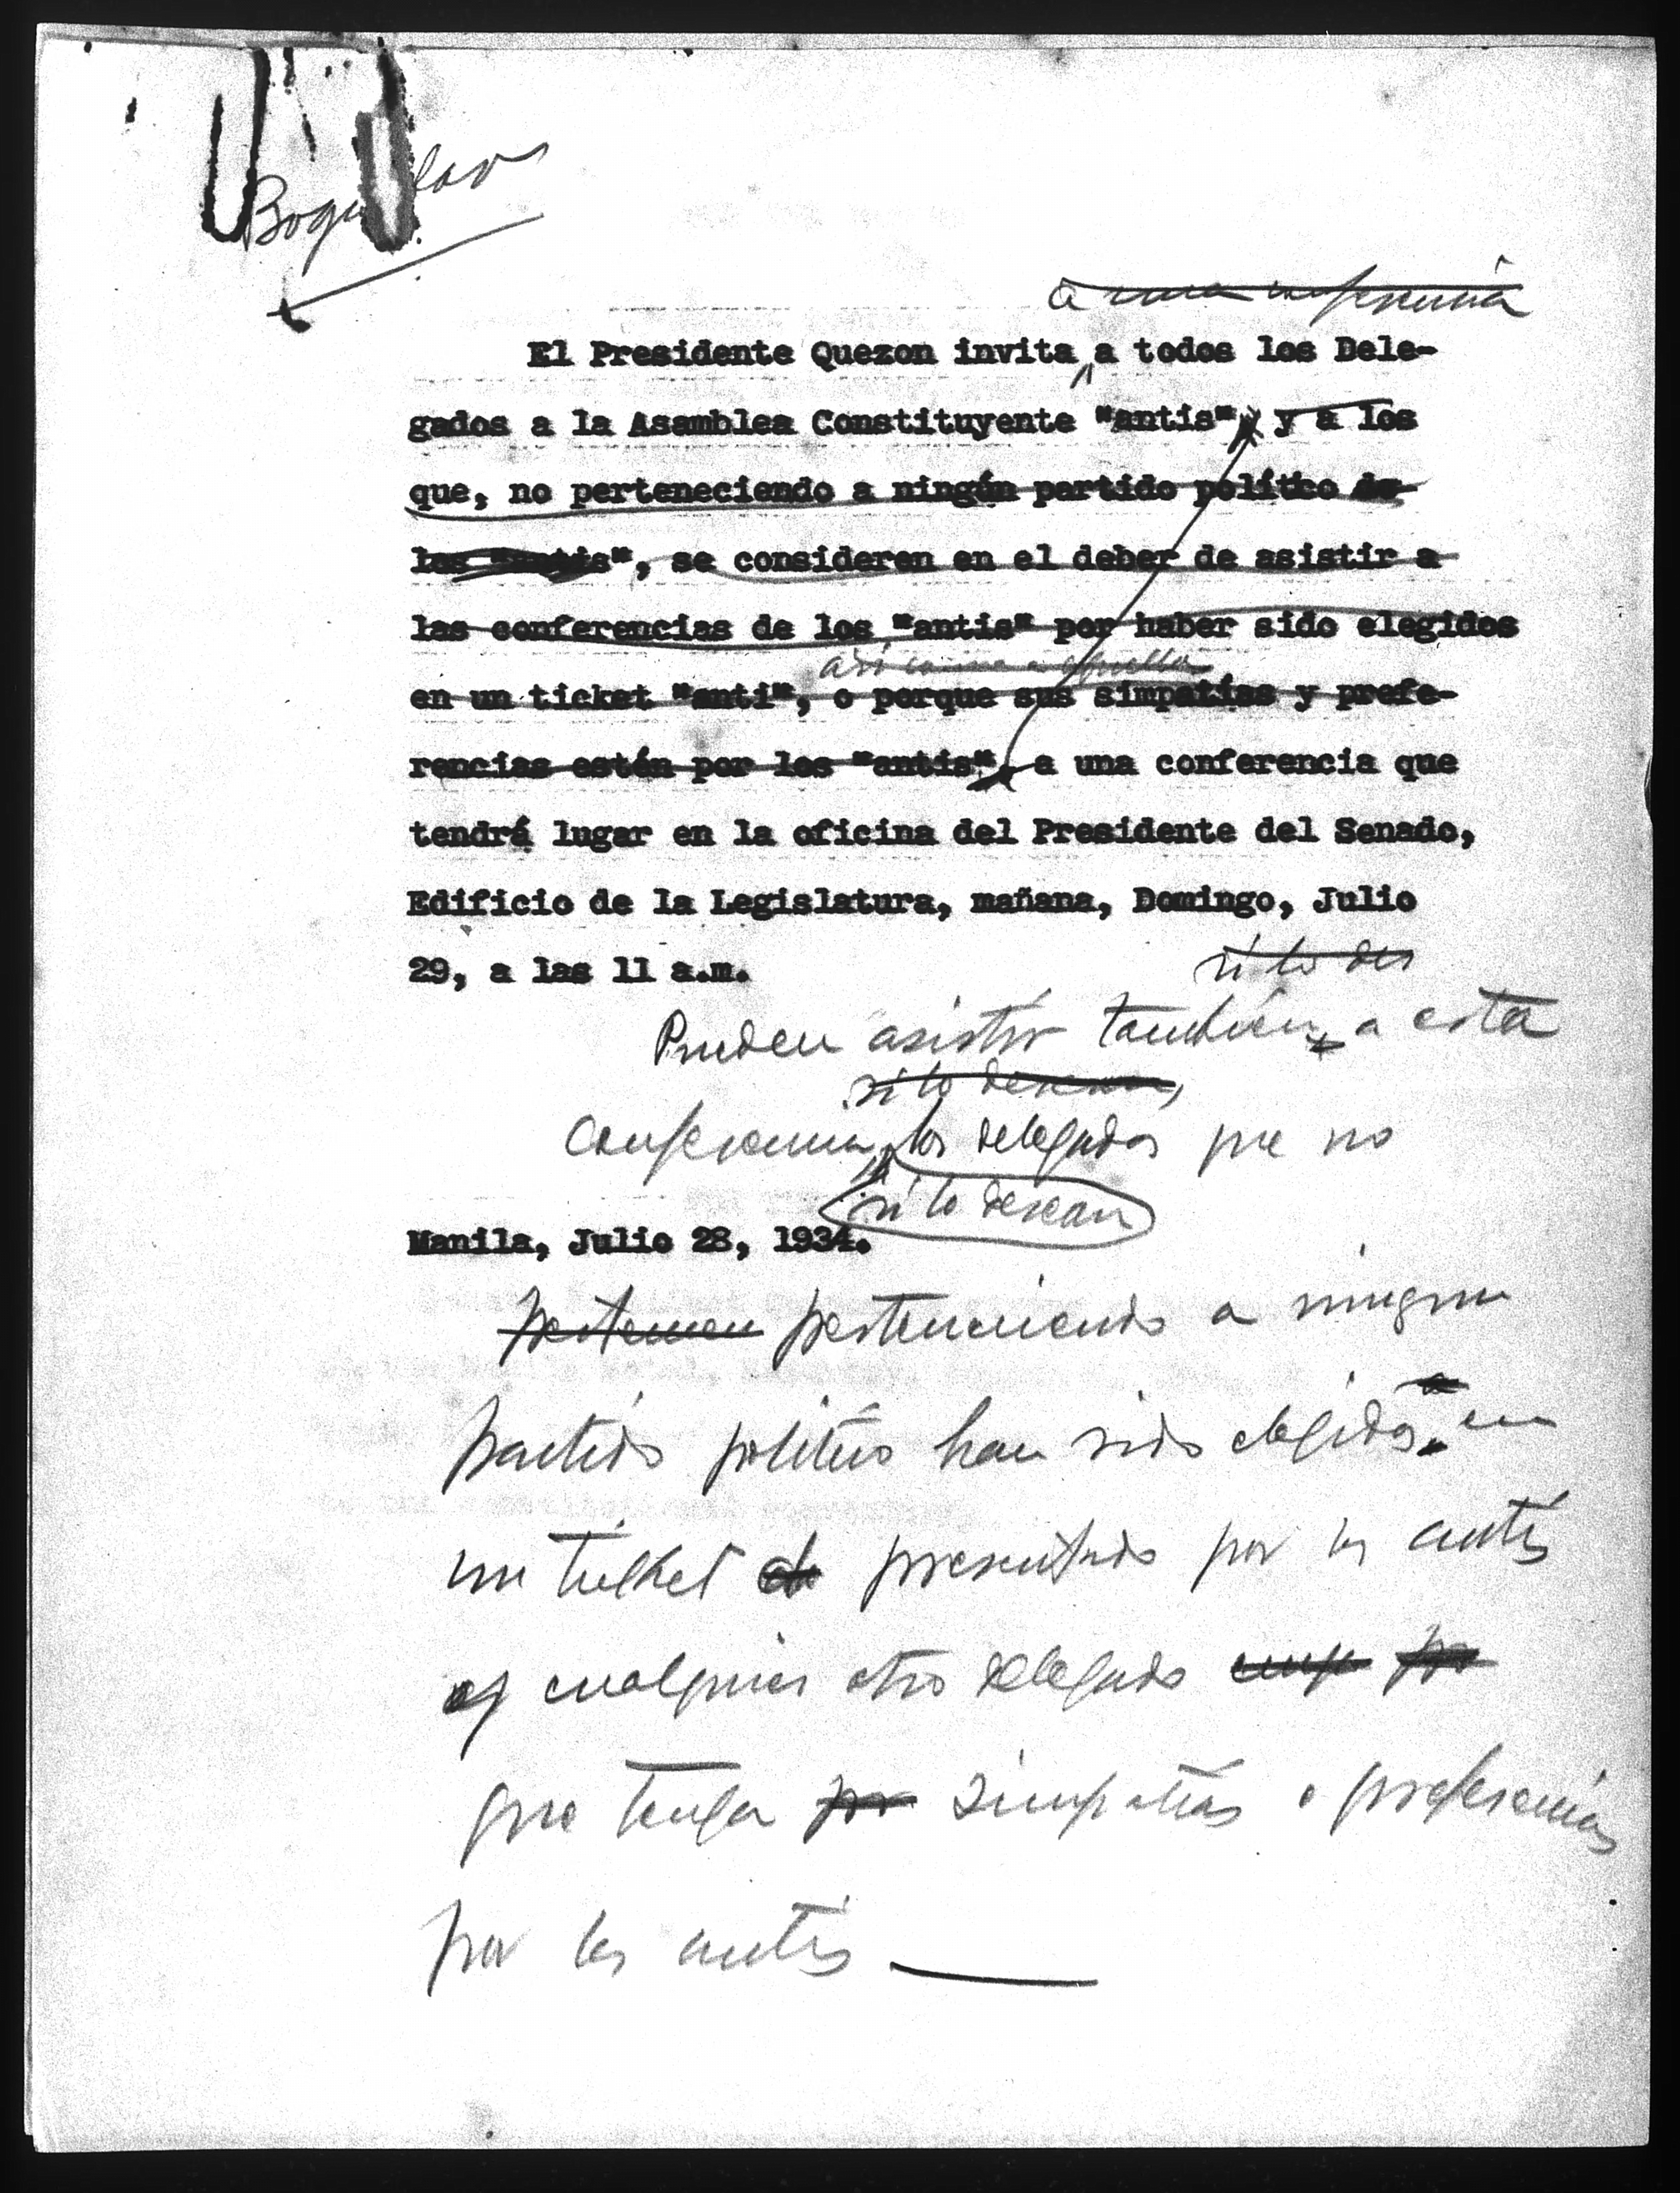 a una conferencia
El Presidente Quezon invita a todos los Dele-
gados a la Asamblea Constituyente "antis", y a los
que, no perteneciendo a ningún partido polítco de
los "antis", se consideren en el deber de asistir a
las conferencias de los "antis" por haber sido elegidos
así como a aquellos
en un ticket "anti", o porque sus simpatías y prefe-
rencias estén por los "antis", a una conferencia que
tendrá lugar en la oficina del Presidente del Senado,
Edificio de la Legislatura, mañana, Domingo, Julio
29, a las 11 a.m.
si lo des
Pueden asistir también a esta
si lo desean,
conferencia los delegados que no
si lo desean
Manila, Julio 28, 1934.
pertenecen perteneciendo a ningun
partido politico han sido elegidos en
un ticket de presentado por los antis
y cualquier otro delegado
que tenga por simpatias o preferencias
por los antis